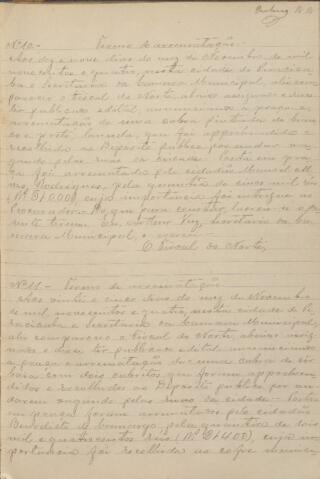 Nº 10 - Termo de arrematação -
Aos dez e nove dias do mez de Novembro de mil
novecentos e quatro, nesta cidade de Piracica-
ba e Secretaria da Camara Municipal, ahi com-
pareceo o fiscal do Norte, abaixo assignado e disse
ter publicado edital, annunciando a praça e
arrematação de uma cabra pintada de bran-
co e preto, que foi apprehendida e
recolhida ao Deposito publico por andar va-
gando pelas ruas da cidade. Posta em pra-
ça foi arrematada pelo cidadão Manoel
Rodrigues, pela quantia de cinco mil réis
(Rs. 5$000), cuja importancia foi entregue ao
Procurador. Do que para constar, lavrei o pre-
sente termo. Eu, Secretario da Ca-
mara Municipal, o escrevi.
O Fiscal do Norte,
Nº 11 - Termo de arrematação -
Aos vinte e cinco dias do mez de Novembro
de mil novecentos e quatro, nesta cidade de Pi-
racicaba e Secretaria da Camara Municipal,
ahi compareceo o Fiscal do Norte, abaixo assig-
nado e disse ter publicado edital annunciando
a praça e arrematação de uma cabra
com dois cabritos que foram apprehen-
didos e recolhidos ao Deposito publico por an-
darem vagando pelas ruas da cidade. Postos
em praça foram arrematados pelo cidadão
Benedicto de Camargo, pela quantia de dois
mil e quatrocentos réis (Rs. 2$400), cuja im-
portancia foi recolhida ao cofre munici-